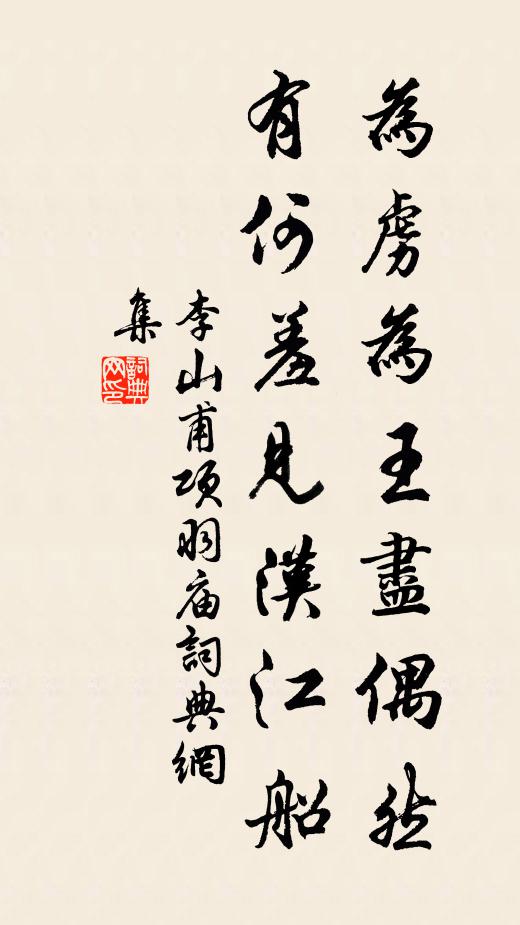 為虜為王盡偶然
有何羞見漢江船
李山甫項羽庙詞典網
集
詞典
网印